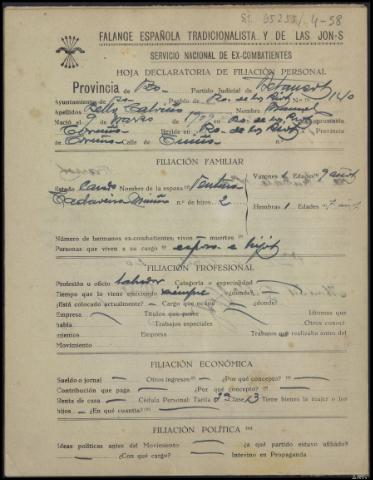 4-58
FALANGE ESPAÑOLA TRADICIONALISTA Y DE LAS JON-S
SERVICIO NACIONAL DE EX-COMBATIENTES
HOJA DECLARATORIA DE FILIACIÓN PERSONAL
Provincia de Partido Judicial de Betanzos
Ayuntamiento de Pueblo de N.º 140
Apellidos Nombre Manuel
Nació el 9 Marzo de
Coruña Reside en Provincia
Coruña Calle de
FILIACIÓN FAMILIAR
Estado Casado Nombre de la esposa Ventura
n.º de hijos 2
Varones 1 Edades 9 años
Hembras 1 Edades 7 años
Número de hermanos ex-combatientes; vivos muertos
Personas que viven a su cargo esposa e hijos
FILIACIÓN PROFESIONAL
Profesión u oficio labrador Categoría o especialidad
Tiempo que la viene ejerciendo siempre ¿dónde?
¿Está colocado actualmente? Cargo que ocupa ¿dónde?
Empresa Títulos que posee Idiomas que
habla Trabajos especiales Otros conoci-
mientos Empresa Trabajos que realizaba antes del
Movimiento
FILIACIÓN ECONÓMICA
Sueldo o jornal Otros ingresos ¿Por qué concepto?
Contribución que paga ¿Por qué concepto?
Renta de casa Cédula Personal Tarifa Clase 13 Tiene bienes la mujer o los
hijos ¿En qué cuantía?
FILIACIÓN POLÍTICA
Ideas políticas antes del Movimiento ¿a qué partido estuvo afiliado?
¿Con qué cargo? Intervino en Propaganda